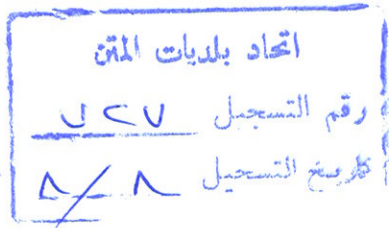 اتحاد بلديات المتن
رقم التسجيل ٧٢٧
تاريخ التسجيل ٨/٨